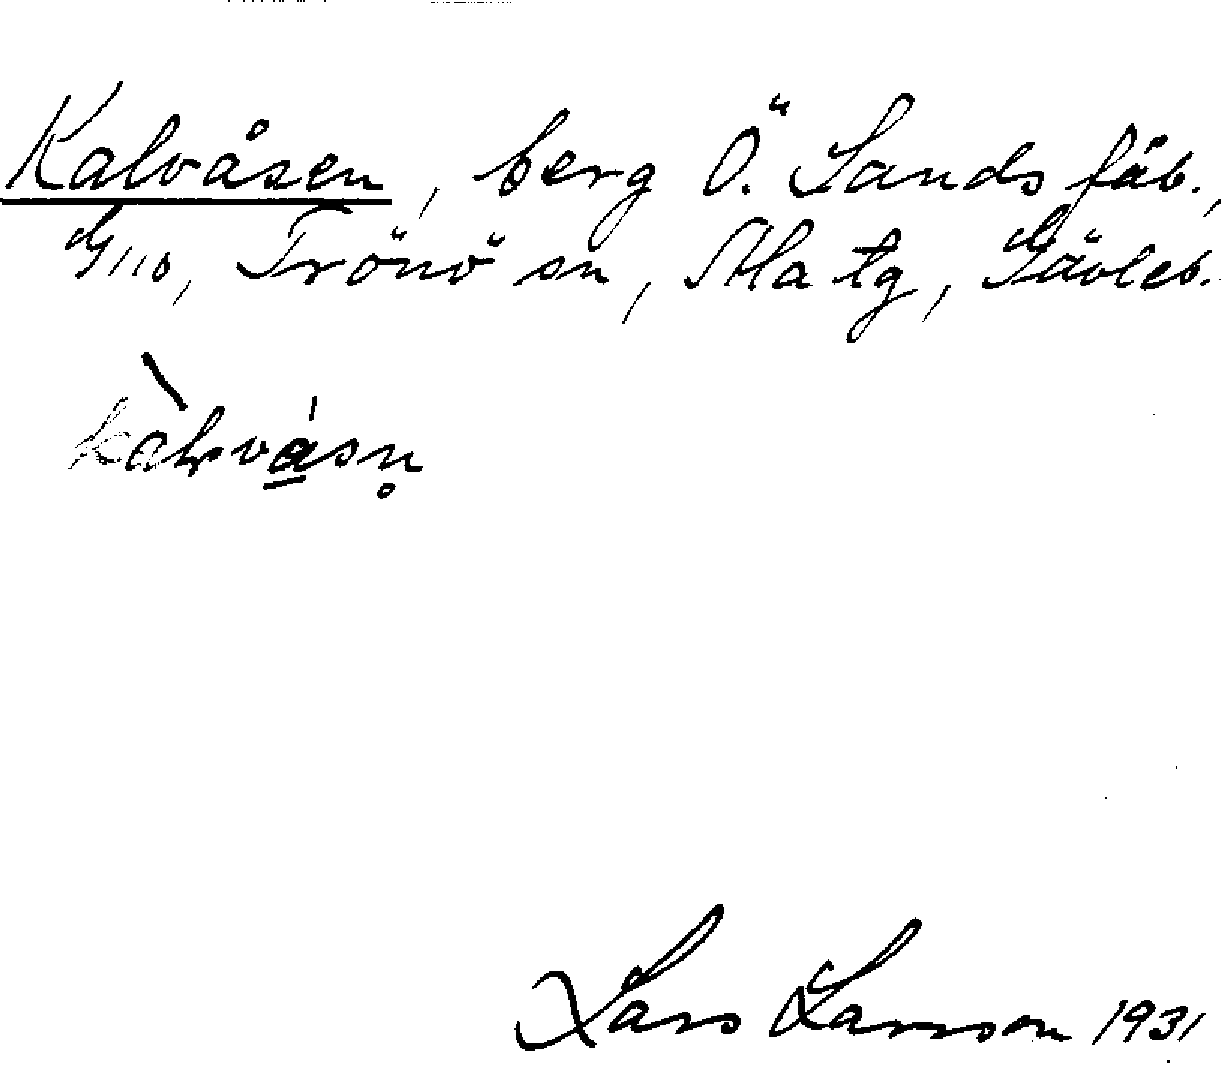 Kalvåsen, berg Ö. Sands fäb.,
G110, Trönö sn, Ala tg, Gävleb.
Lars Larsson 1931